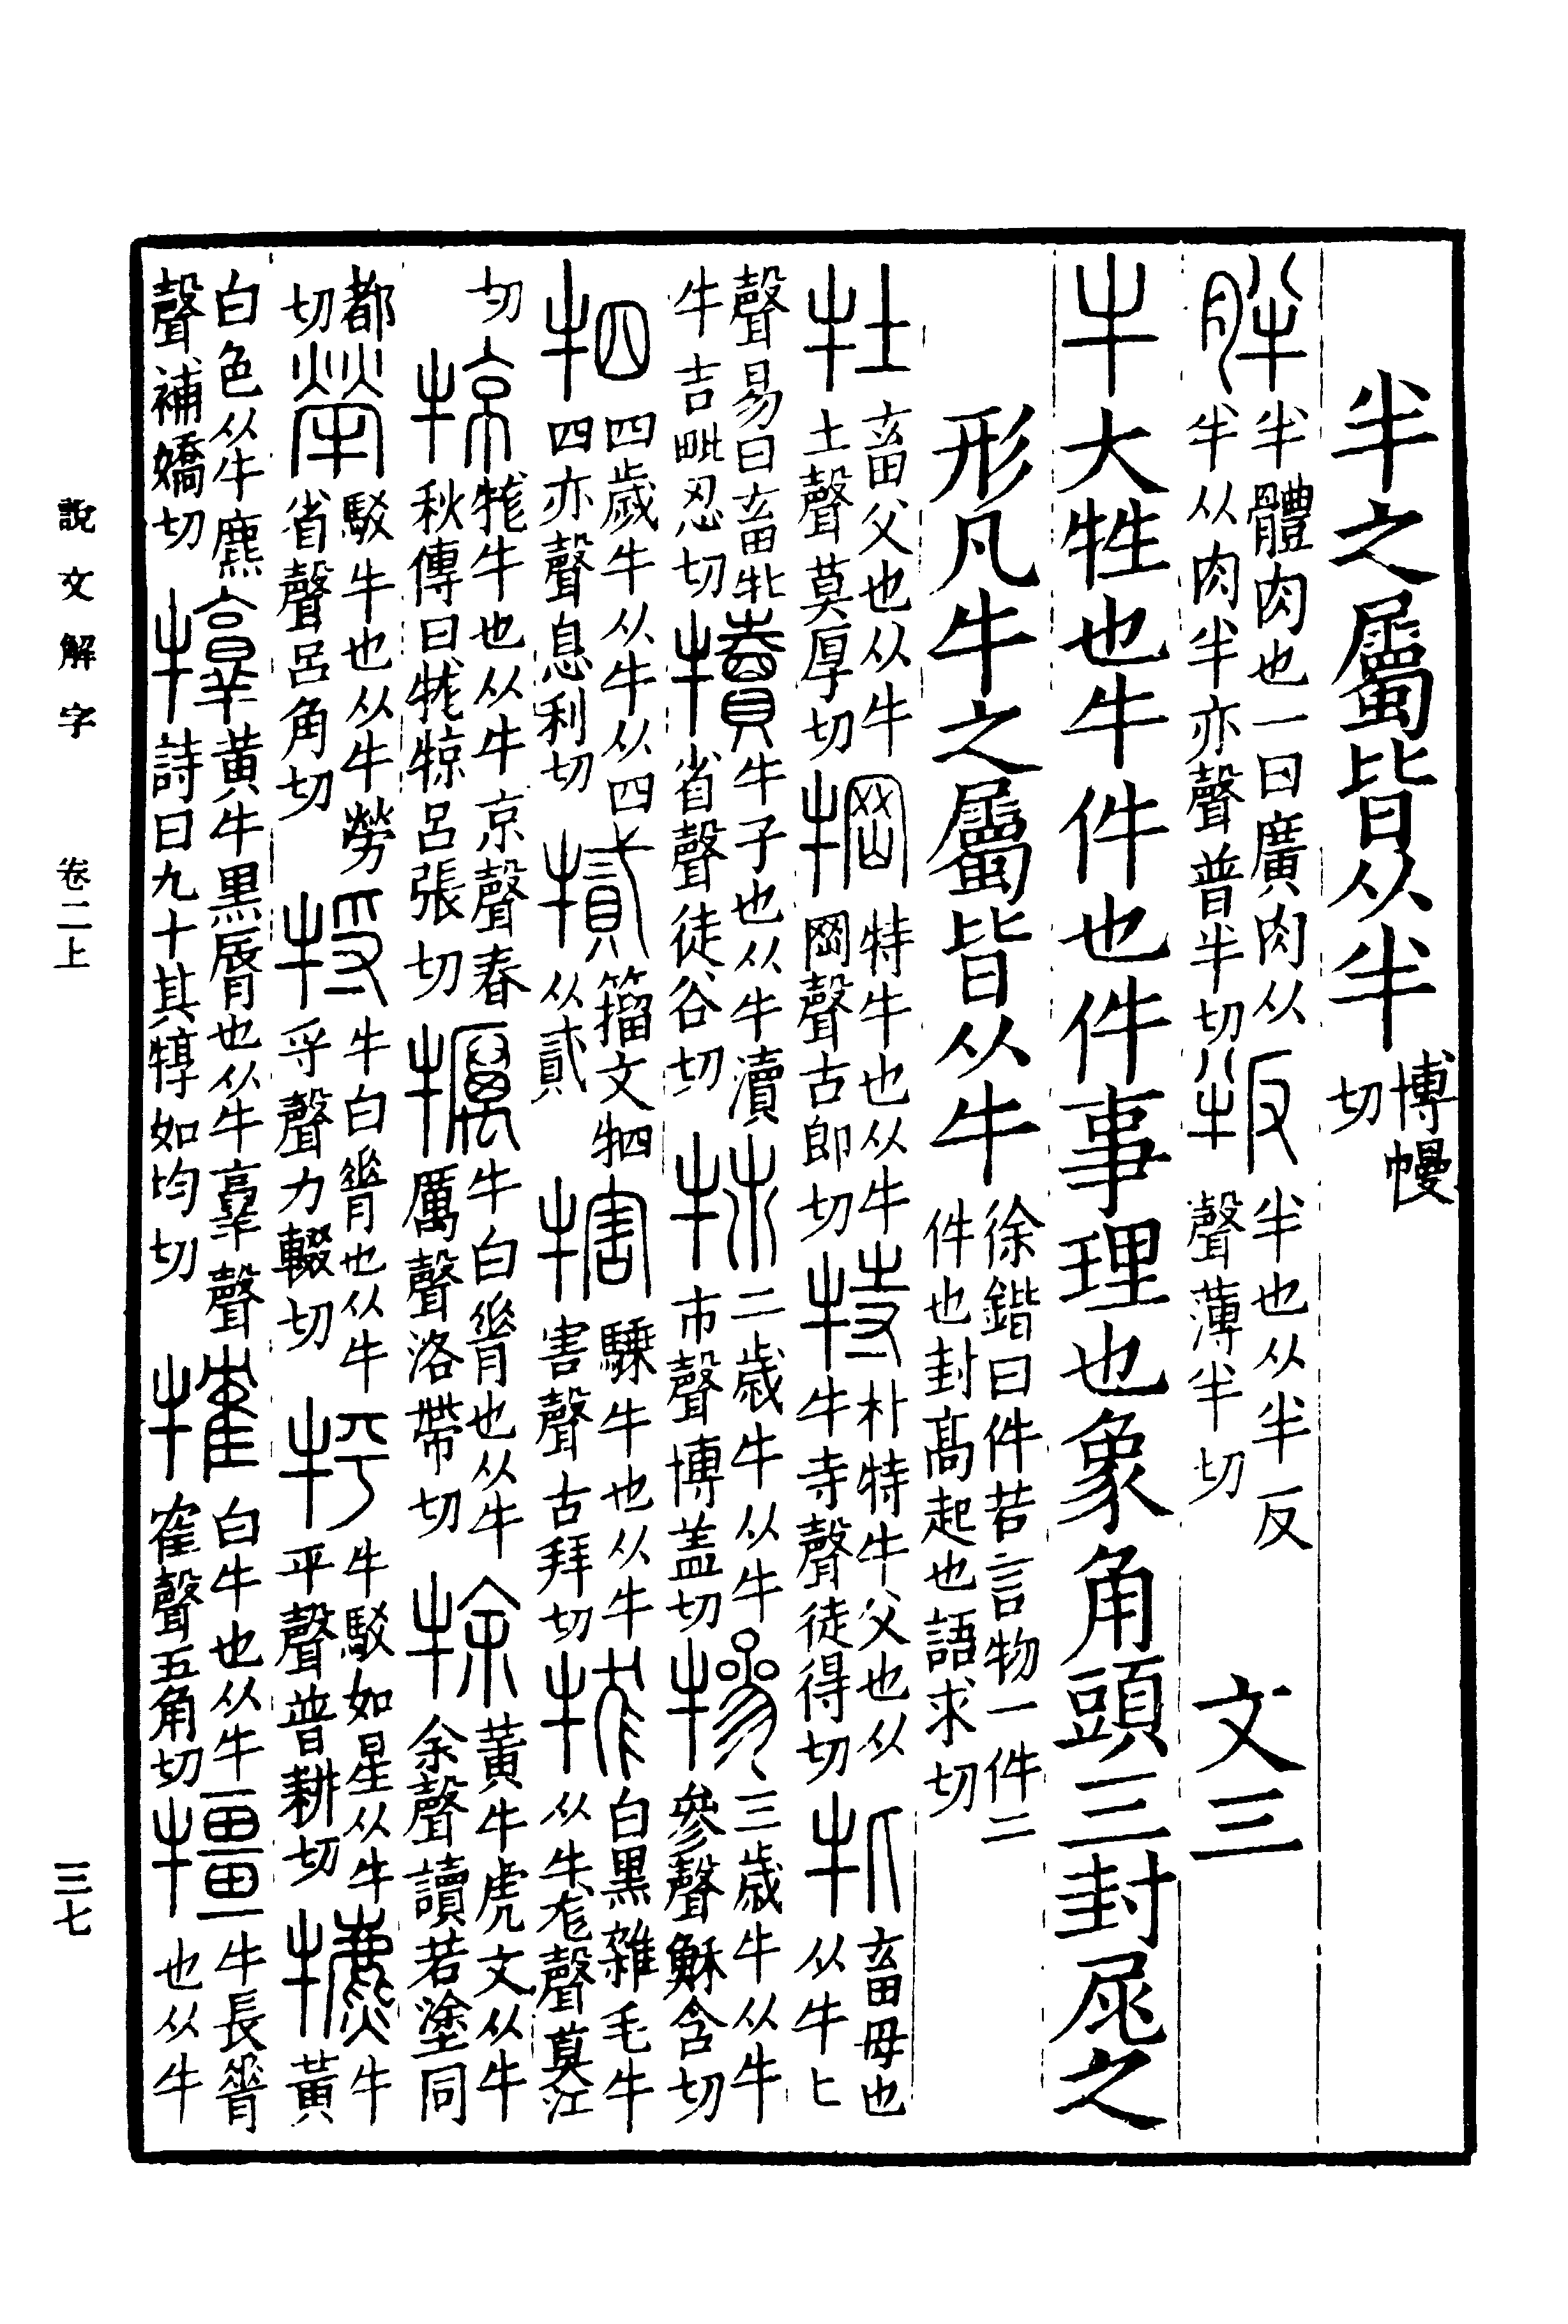 半之屬皆从半博幔切
胖半體肉也一曰廣肉从半从肉半亦聲普半切
叛半也从半反聲薄半切
文三
牛大牲也牛件也件事理也象角頭三封𡰥之
形凡牛之屬皆从牛徐鍇曰件若言物一件二件也封高起也語求切
牡畜父也从牛土聲莫厚切
犅特牛也从牛岡聲古郎切
特朴特牛父也从牛寺聲徒得切
牝畜母也从牛匕
聲易曰畜牝牛吉毗忍切
犢牛子也从牛瀆省聲徒谷切
㸬二歲牛从牛巿聲博蓋切
犙三歲牛从牛參聲穌含切
牭四歲牛从牛从四四亦聲息利切
𤚥籀文牭从貳
犗騬牛也从牛害聲古拜切
牻白黑雜毛牛从牛尨聲莫江
切
㹁牻牛也从牛京聲春秋傳曰牻㹁呂張切
犡牛白脊也从牛厲聲洛帶切
㹊黃牛虎文从牛余聲讀若塗同
都切
犖駁牛也从牛勞省聲呂角切
㸹牛白脊也从牛寽聲力輟切
㸻牛駁如星从牛平聲普耕切
犥牛黃
白色从牛麃聲補嬌切
犉黃牛黑脣也从牛𦎫聲詩曰九十其犉如均切
㹊白牛也从牛隺聲五角切
犟牛長脊也从牛
說文解字　卷二上　三七